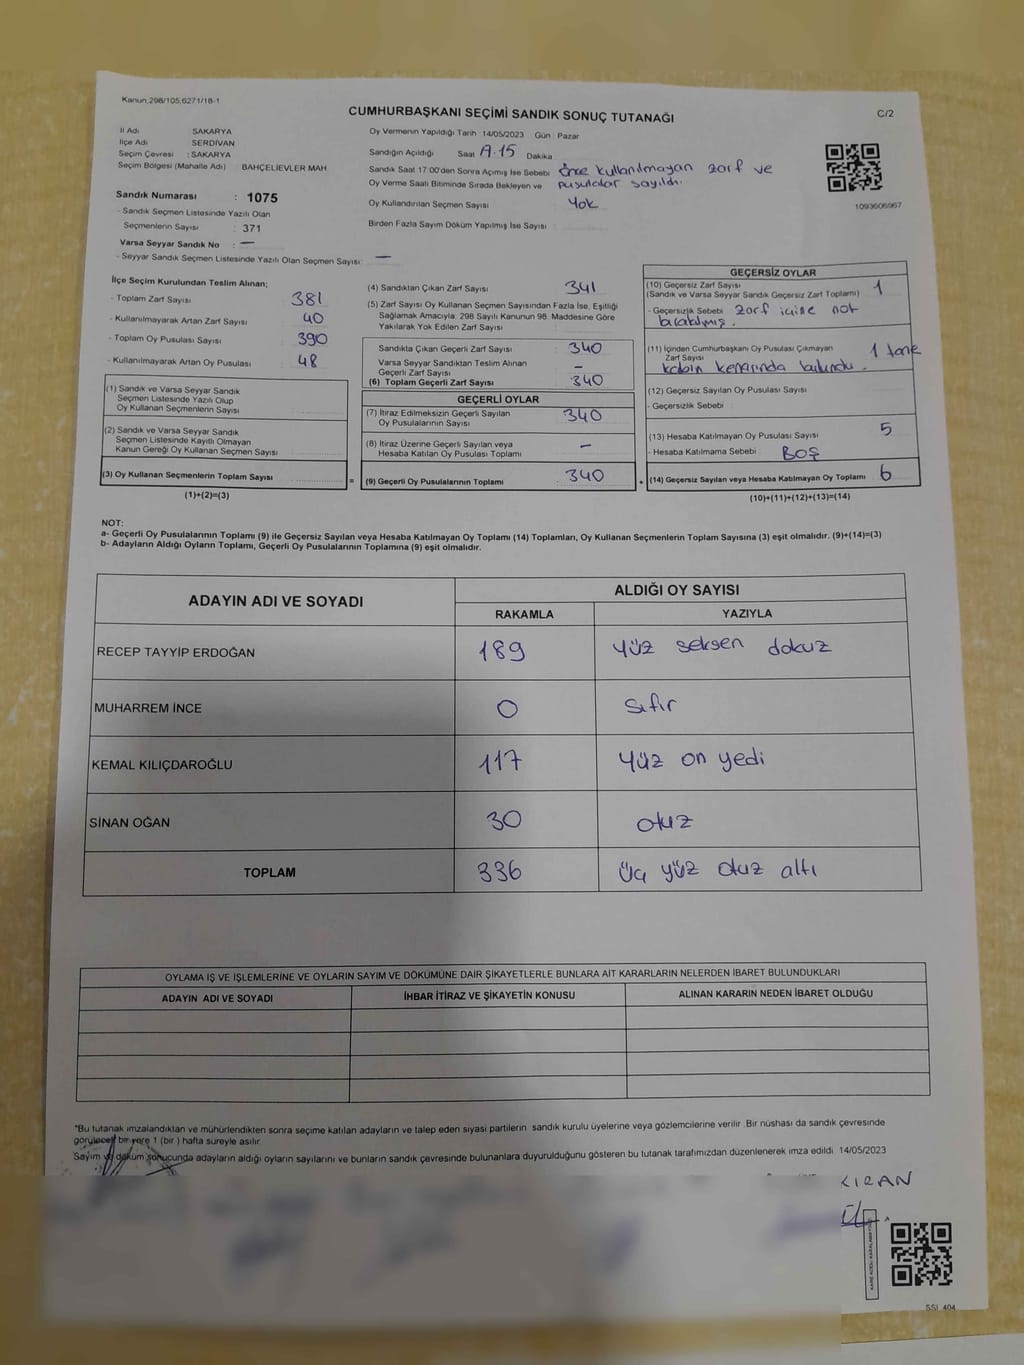 Kanun;298/105,6271/18-1
CUMHURBAŞKANI SEÇİMİ SANDIK SONUÇ TUTANAĞI
C/2
İl Adı SAKARYA
İlçe Adı SERDİVAN
Seçim Çevresi : SAKARYA
Seçim Bölgesi (Mahalle Adı) BAHÇELİEVLER MAH.
Sandık Numarası : 1075
- Sandık Seçmen Listesinde Yazılı Olan
Seçmenlerin Sayısı : 371
Varsa Seyyar Sandık No : —
- Seyyar Sandık Seçmen Listesinde Yazılı Olan Seçmen Sayısı: —
Oy Vermenin Yapıldığı Tarih : 14/05/2023 Gün : Pazar
Sandığın Açıldığı Saat 17.15 Dakika
Sandık Saat 17:00'den Sonra Açımış İse Sebebi Önce kullanılmayan zarf ve
Oy Verme Saati Bitiminde Sırada Bekleyen ve pusulalar sayıldı.
Oy Kullandırılan Seçmen Sayısı Yok
Birden Fazla Sayım Döküm Yapılmış İse Sayısı :
1093606967
İlçe Seçim Kurulundan Teslim Alınan;
- Toplam Zarf Sayısı 381
- Kullanılmayarak Artan Zarf Sayısı 40
- Toplam Oy Pusulası Sayısı 390
- Kullanılmayarak Artan Oy Pusulası 48
(1) Sandık ve Varsa Seyyar Sandık
Seçmen Listesinde Yazılı Olup
Oy Kullanan Seçmenlerin Sayısı
(2) Sandık ve Varsa Seyyar Sandık
Seçmen Listesinde Kayıtlı Olmayan
Kanun Gereği Oy Kullanan Seçmen Sayısı
(3) Oy Kullanan Seçmenlerin Toplam Sayısı
(1)+(2)=(3)
=
(4) Sandıktan Çıkan Zarf Sayısı 341
(5) Zarf Sayısı Oy Kullanan Seçmen Sayısından Fazla İse, Eşitliği
Sağlamak Amacıyla; 298 Sayılı Kanunun 98. Maddesine Göre
Yakılarak Yok Edilen Zarf Sayısı
Sandıkta Çıkan Geçerli Zarf Sayısı 340
Varsa Seyyar Sandıktan Teslim Alınan
Geçerli Zarf Sayısı –
(6) Toplam Geçerli Zarf Sayısı 340
GEÇERLİ OYLAR
(7) İtiraz Edilmeksizin Geçerli Sayılan
Oy Pusulalarının Sayısı 340
(8) İtiraz Üzerine Geçerli Sayılan veya
Hesaba Katılan Oy Pusulası Toplamı –
(9) Geçerli Oy Pusulalarının Toplamı 340
+
GEÇERSİZ OYLAR
(10) Geçersiz Zarf Sayısı 1
(Sandık ve Varsa Seyyar Sandık Geçersiz Zarf Toplamı)
- Geçersizlik Sebebi Zarf içine not
bırakılmış.
(11) İçinden Cumhurbaşkanı Oy Pusulası Çıkmayan 1 tane
Zarf Sayısı kabin kenarında bulundu.
(12) Geçersiz Sayılan Oy Pusulası Sayısı
- Geçersizlik Sebebi
(13) Hesaba Katılmayan Oy Pusulası Sayısı 5
- Hesaba Katılmama Sebebi BOŞ
(14) Geçersiz Sayılan veya Hesaba Katılmayan Oy Toplamı 6
(10)+(11)+(12)+(13)=(14)
NOT:
a- Geçerli Oy Pusulalarının Toplamı (9) ile Geçersiz Sayılan veya Hesaba Katılmayan Oy Toplamı (14) Toplamları, Oy Kullanan Seçmenlerin Toplam Sayısına (3) eşit olmalıdır. (9)+(14)=(3)
b- Adayların Aldığı Oyların Toplamı, Geçerli Oy Pusulalarının Toplamına (9) eşit olmalıdır.
ADAYIN ADI VE SOYADI
ALDIĞI OY SAYISI
RAKAMLA YAZIYLA
RECEP TAYYİP ERDOĞAN 189 Yüz seksen dokuz
MUHARREM İNCE 0 Sıfır
KEMAL KILIÇDAROĞLU 117 Yüz on yedi
SİNAN OĞAN 30 otuz
TOPLAM 336 Üç yüz otuz altı
OYLAMA İŞ VE İŞLEMLERİNE VE OYLARIN SAYIM VE DÖKÜMÜNE DAİR ŞİKAYETLERLE BUNLARA AİT KARARLARIN NELERDEN İBARET BULUNDUKLARI
ADAYIN ADI VE SOYADI İHBAR İTİRAZ VE ŞİKAYETİN KONUSU ALINAN KARARIN NEDEN İBARET OLDUĞU
*Bu tutanak imzalandıktan ve mühürlendikten sonra seçime katılan adayların ve talep eden siyasi partilerin sandık kurulu üyelerine veya gözlemcilerine verilir. Bir nüshası da sandık çevresinde
görülecek bir yere 1 (bir ) hafta süreyle asılır.
Sayım ve döküm sonucunda adayların aldığı oyların sayılarını ve bunların sandık çevresinde bulunanlara duyurulduğunu gösteren bu tutanak tarafımızdan düzenlenerek imza edildi. 14/05/2023
KIRAN
SSİ_404